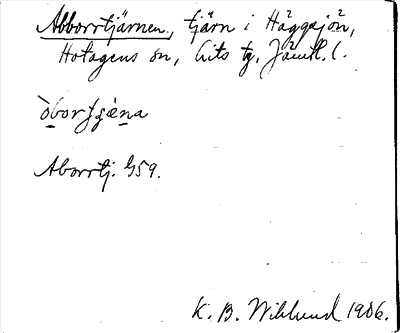 Abborrtjärnen, tjärn i Häggsjön,
Hotagens sn, Lits tg, Jämtl. l.
Aborrtj. G59.
K. B. Wiklund 1906.